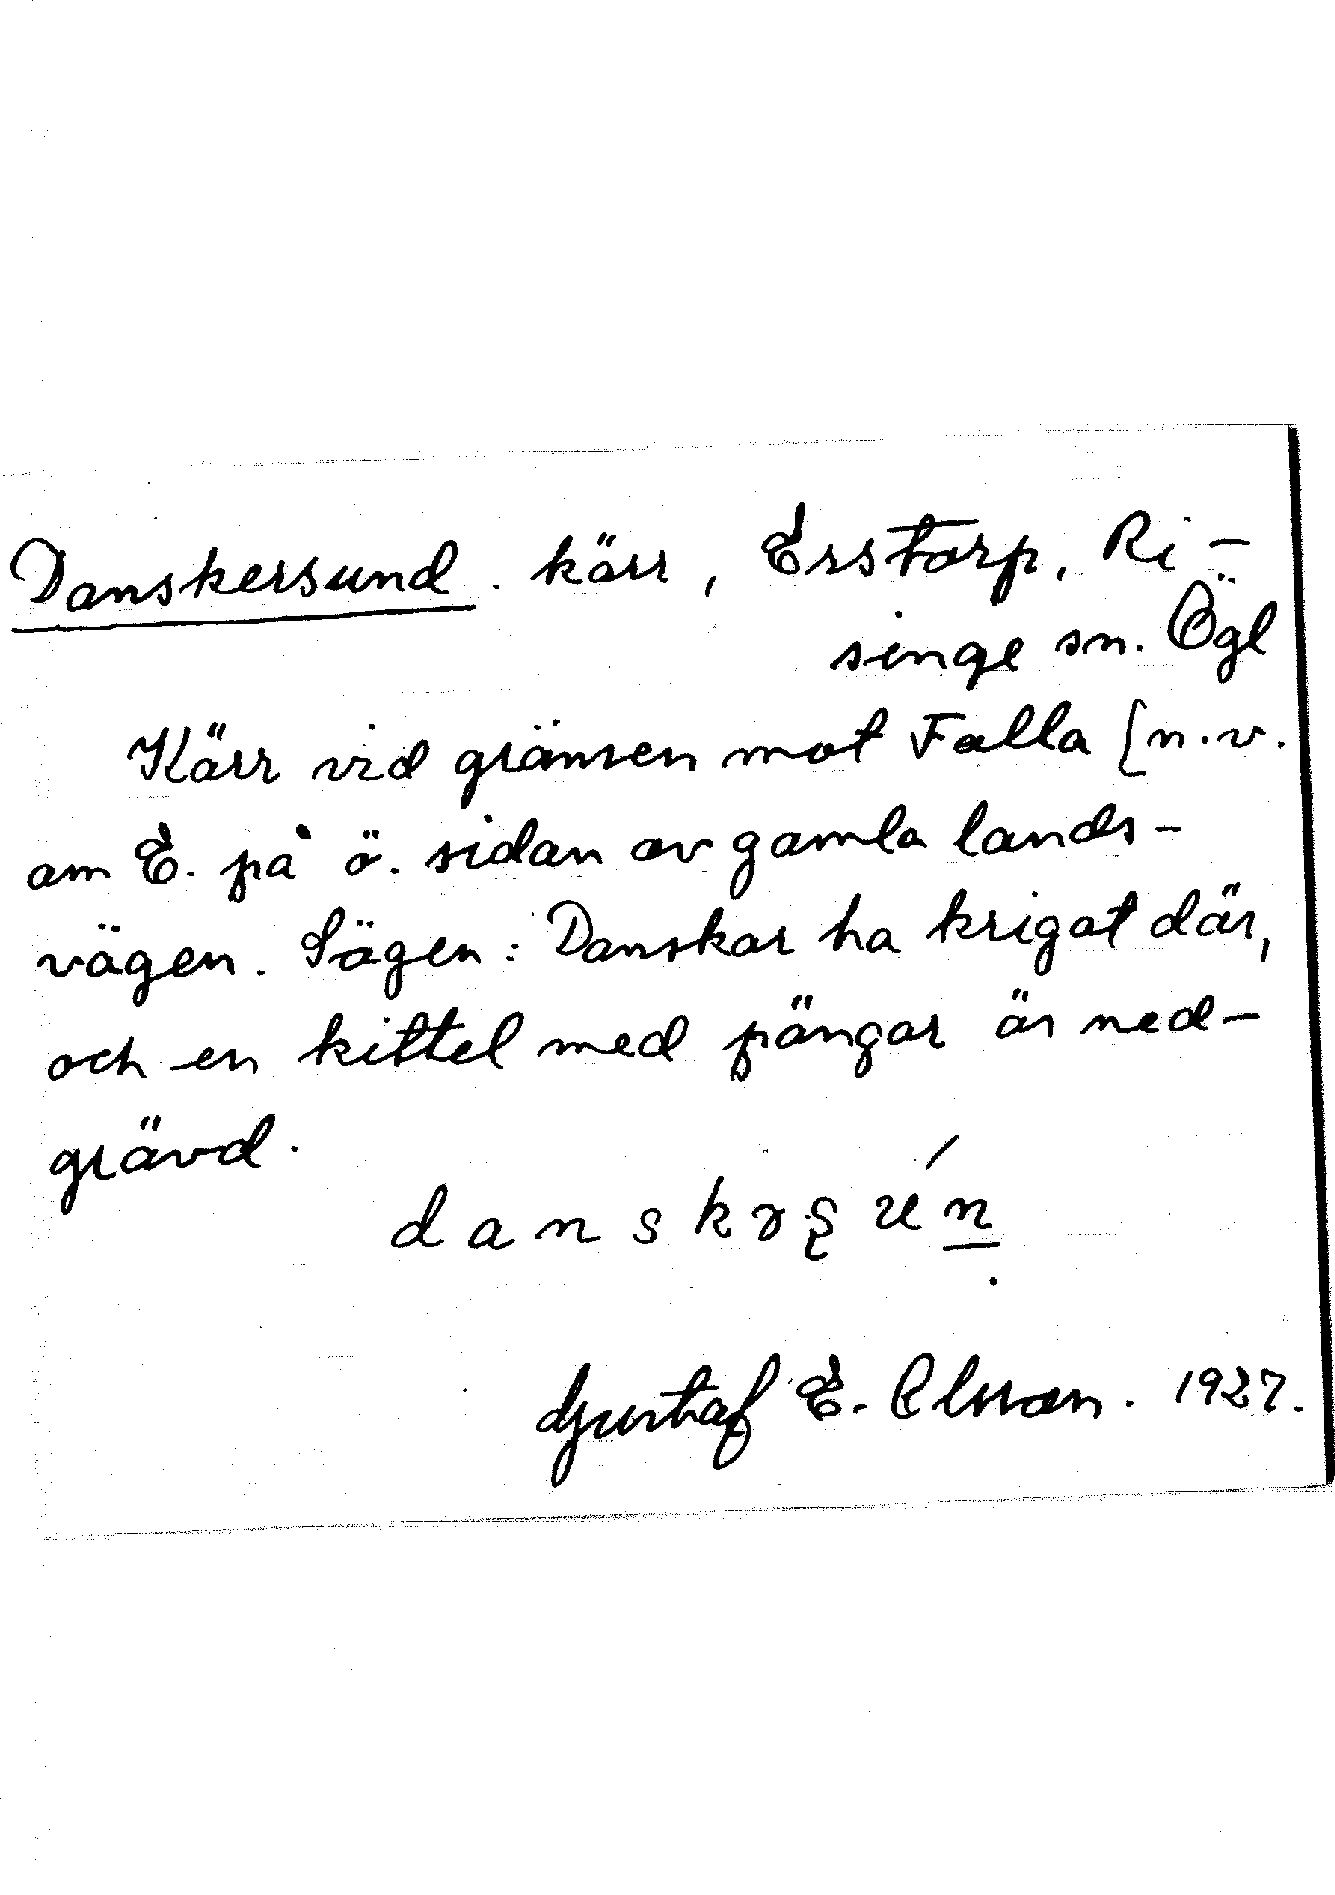 Danskersund. kärr, Erstorp, Ri-
singe sn. Ögl
Kärr vid gränsen mot Falla [n.v.
om E. på ö. sidan av gamla lands-
vägen. Sägen: Danskar ha krigat där,
och en kittel med pängar är ned-
grävd.
Gustaf E. Olsson. 1927.